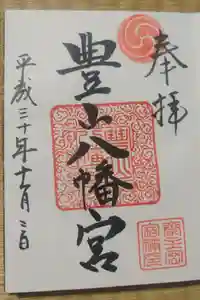 奉拝
豊山八幡宮
平成三十年十一月三日